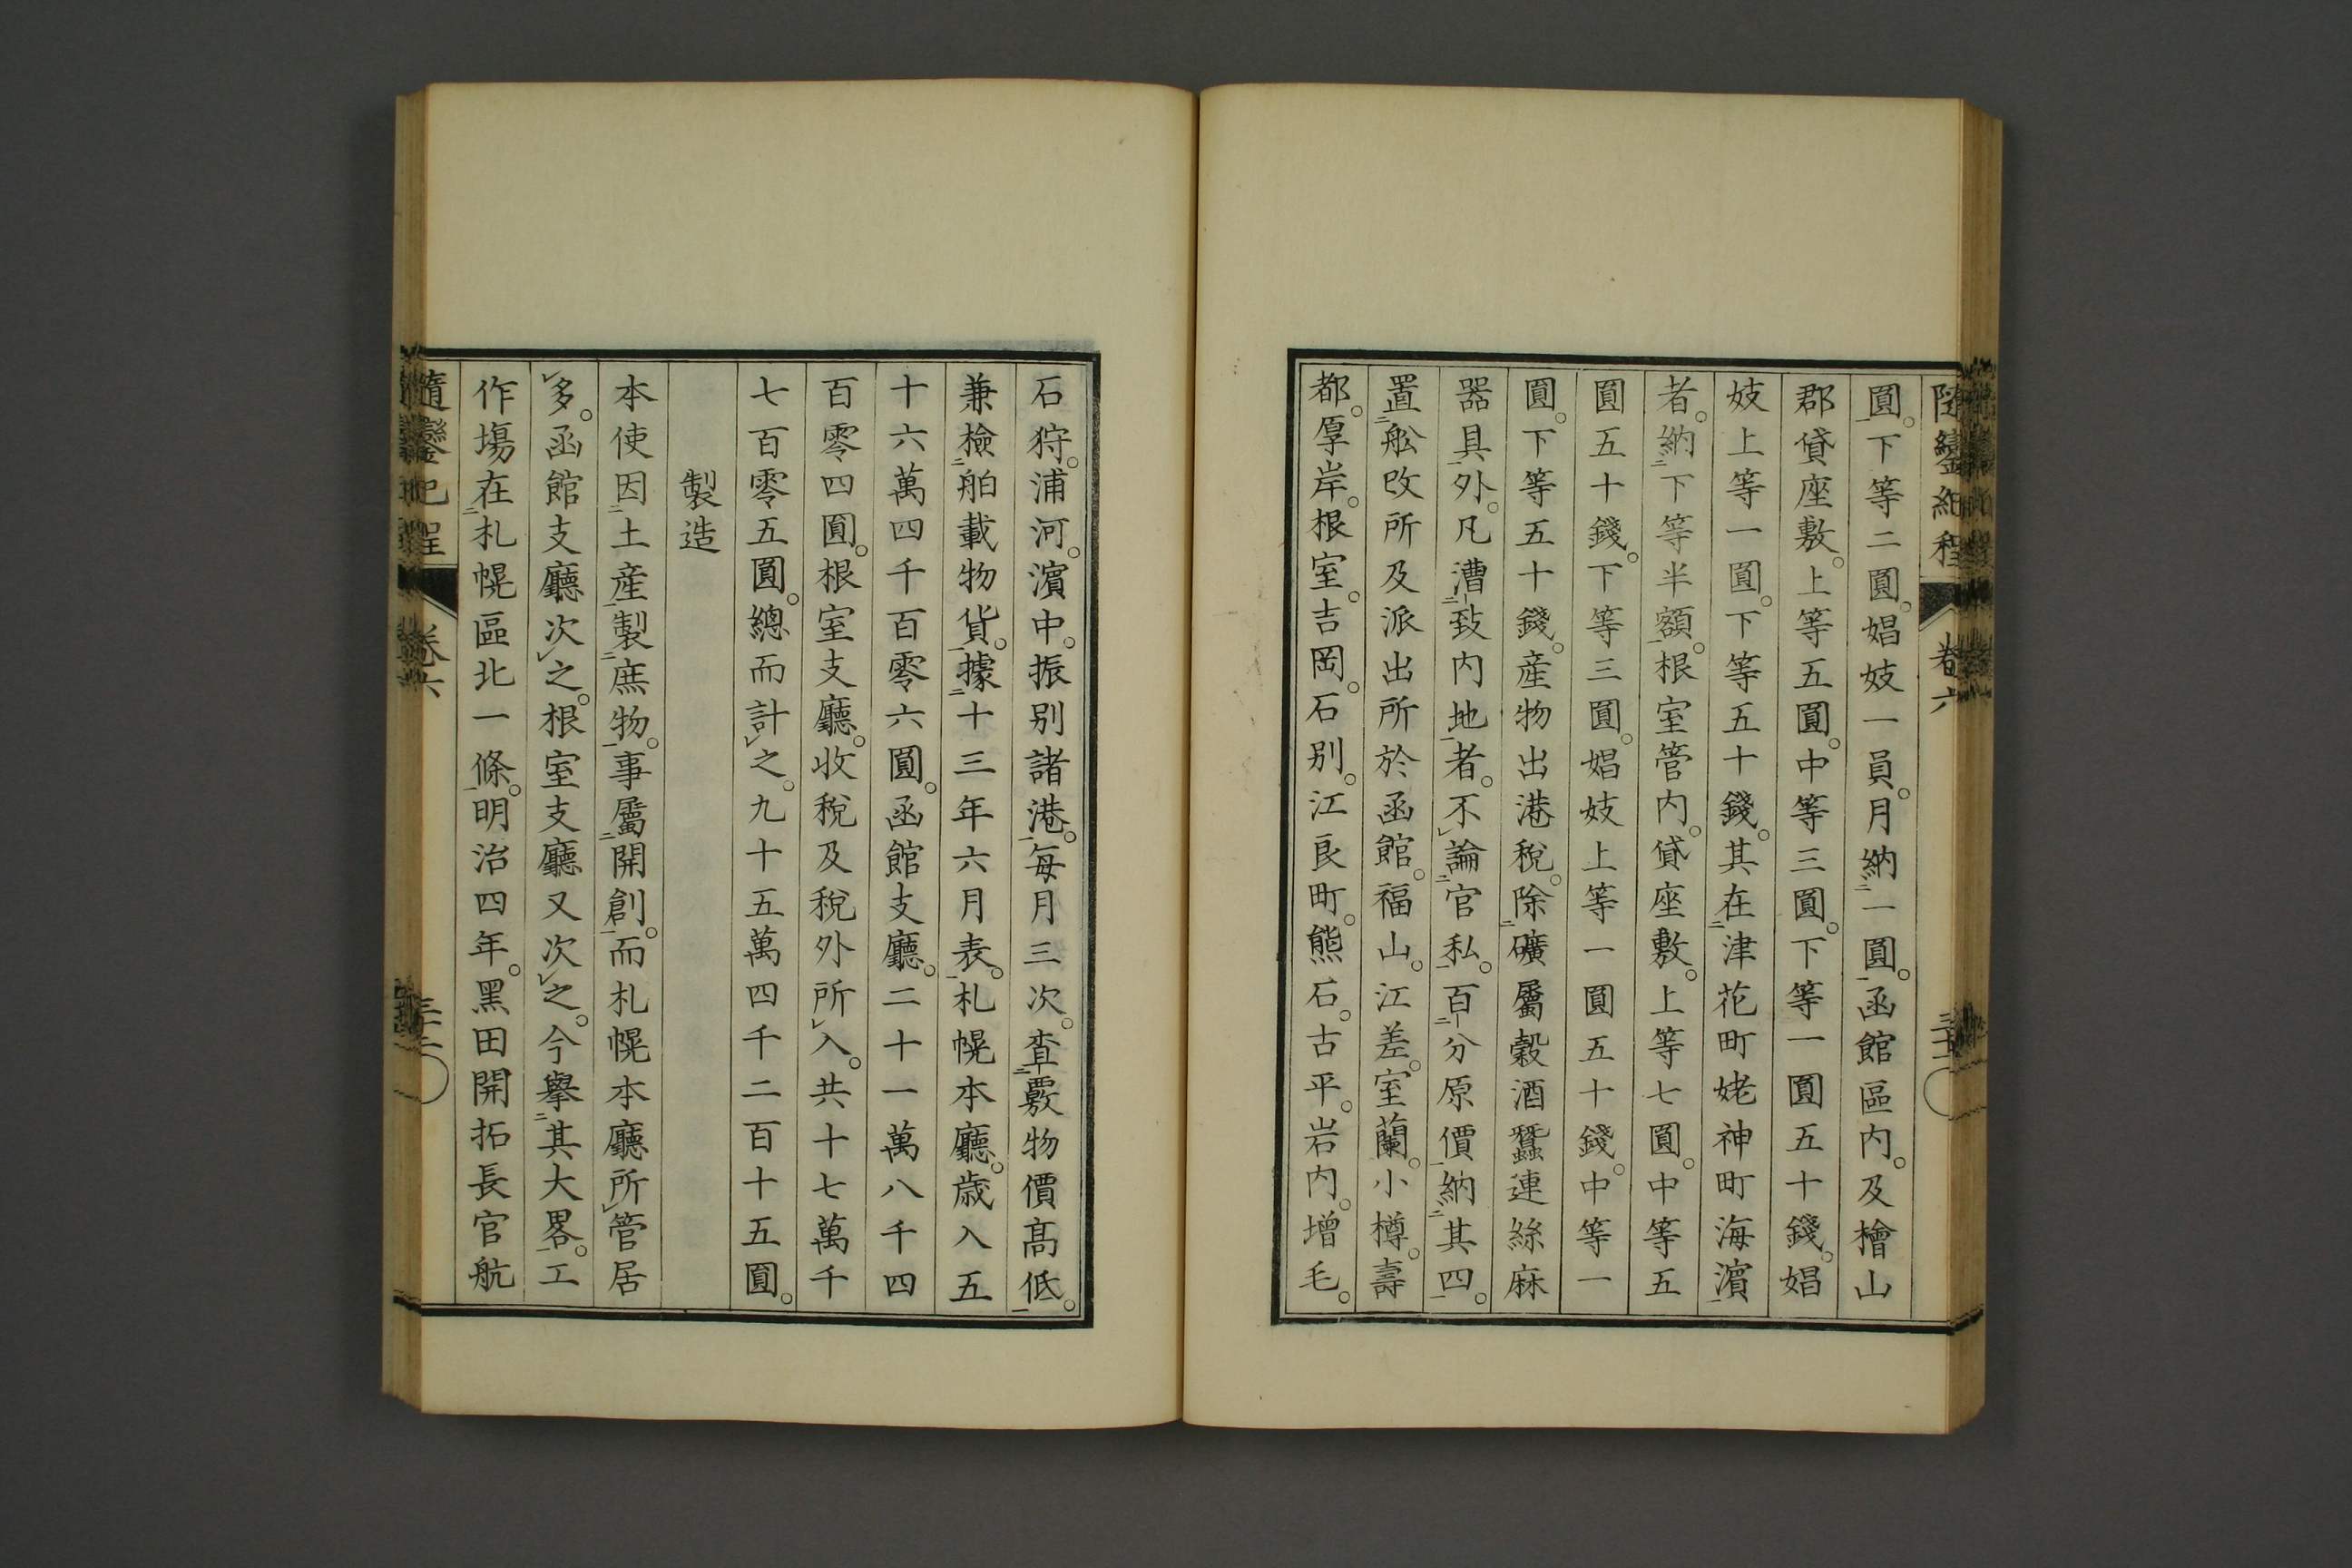 隨鑾紀程 卷六
圓。下等二圓。娼妓一員。月納二一圓一。函館區内。及檜山
郡貸座敷。上等五圓。中等三圓。下等一圓五十錢。娼
妓上等一圓。下等五十錢。其在二津花町姥神町海濱一
者。納二下等半額一。根室管内。貸座敷。上等七圓。中等五
圓五十錢。下等三圓。娼妓上等一圓五十錢。中等一
圓。下等五十錢。産物出港稅。除二礦屬穀酒蠶連絲麻
器具一外。凡漕二致内地一者。不レ論二官私一。百二分原價一納二其四一。
置二舩改所及派出所於函館。福山。江差。室蘭。小樽。壽
都。厚岸。根室。吉岡。石別。江良町。熊石。古平。岩内。增毛。
石狩。浦河。濱中。振別諸港一。每月三次。查二覈物價高低一。
兼檢二舶載物貨一。據二十三年六月表一。札幌本廳。歲入五
十六萬四千百零六圓。函館支廳。二十一萬八千四
百零四圓。根室支廳。收稅及稅外所レ入。共十七萬千
七百零五圓。總而計レ之。九十五萬四千二百十五圓。
製造
本使因二土産一製二庶物一。事屬二開創一。而札幌本廳所レ管居
レ多。函館支廳次レ之。根室支廳又次レ之。今擧二其大畧一。工
作塲在二札幌區北一條一。明治四年。黑田開拓長官航
隨鑾紀程 卷六